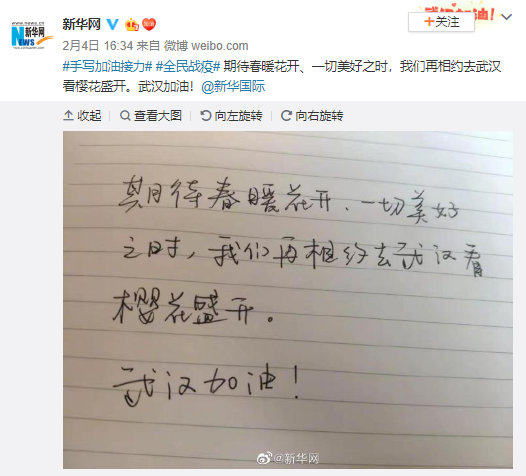 武汉加油！
www.news.cn
新华网
NEWS
新华网
+关注
2月4日 16:34 来自 微博 weibo.com
#手写加油接力# #全民战疫# 期待春暖花开、一切美好之时，我们再相约去武汉
看樱花盛开。武汉加油！@新华国际
收起 查看大图 向左旋转 向右旋转
期待春暖花开、一切美好
之时，我们再相约去武汉看
樱花盛开。
武汉加油！
@新华网